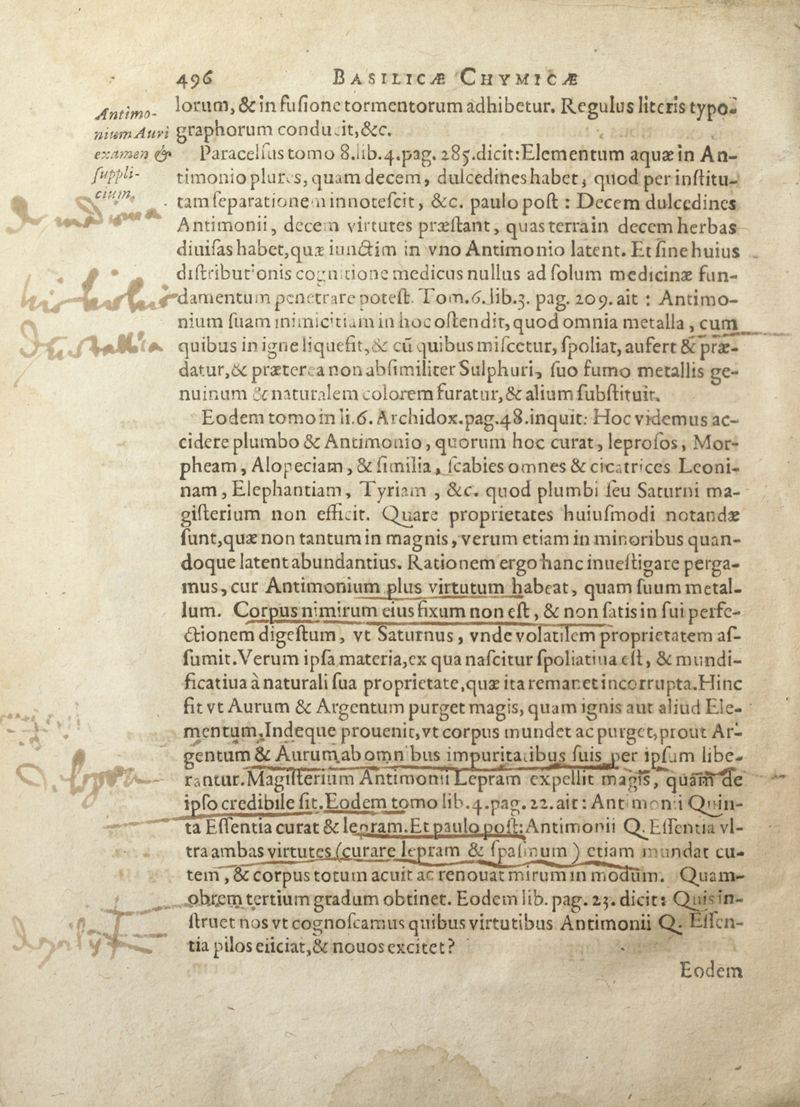 496 BASILICÆ CHYMICÆ
Antimo-
nium Auri
examen &
ſuppli-
cium.
lorum, & in fuſione tormentorum adhibetur. Regulus literis typo-
graphorum conducit, &c.
Paracelſus tomo 8.lib.4.pag. 285.dicit:Elementum aquæ in An-
timonio plures, quam decem, dulcedines habet, quod per inſtitu-
tam ſeparationem innoteſcit, &c. paulo poſt : Decem dulcedines
Antimonii, decem virtutes præſtant, quas terra in decem herbas
diuiſas habet, quæ iunctim in vno Antimonio latent. Et ſine huius
diſtributionis cognitione medicus nullus ad ſolum medicinæ fun-
damentum penetrare poteſt. Tom.6.lib.3. pag. 209. ait : Antimo-
nium ſuam inimicitiam in hoc oſtendit, quod omnia metalla, cum
quibus in igne liquefit, & cū quibus miſcetur, ſpoliat, aufert & præ-
datur, & præterea non abſimiliter Sulphuri, ſuo fumo metallis ge-
nuinum & naturalem colorem furatur, & alium ſubſtituit.
Eodem tomo in li.6. Archidox.pag.48.inquit: Hoc videmus ac-
cidere plumbo & Antimonio, quorum hoc curat, leproſos, Mor-
pheam, Alopeciam, & ſimilia, ſcabies omnes & cicatrices Leoni-
nam, Elephantiam, Tyriam, &c. quod plumbi ſeu Saturni ma-
giſterium non efficit. Quare proprietates huiuſmodi notandæ
ſunt, quæ non tantum in magnis, verum etiam in minoribus quan-
doque latent abundantius. Rationem ergo hanc inueſtigare perga-
mus, cur Antimonium plus virtutum habeat, quam ſuum metal-
lum. Corpus nimirum eius fixum non eſt, & non ſatis in ſui perfe-
ctionem digeſtum, vt Saturnus, vnde volatilem proprietatem aſ-
ſumit. Verum ipſa materia, ex qua naſcitur ſpoliatiua eſt, & mundi-
ficatiua à naturali ſua proprietate, quæ ita remanet incorrupta. Hinc
fit vt Aurum & Argentum purget magis, quam ignis aut aliud Ele-
mentum. Indeque prouenit, vt corpus mundet ac purget, prout Ar-
gentum & Aurum ab omnibus impuritatibus ſuis per ipſum libe-
rantur. Magiſterium Antimonii Lepram expellit magis, quàm de
ipſo credibile ſit. Eodem tomo lib.4.pag.22.ait : Antimonii Quin-
ta Eſſentia curat & lepram. Et paulo poſt: Antimonii Q. Eſſentia vl-
tra ambas virtutes (curare lepram & ſpaſmum) etiam mundat cu-
tem, & corpus totum acuit ac renouat mirum in modum. Quam-
obrem tertium gradum obtinet. Eodem lib. pag. 23. dicit: Quis in-
ſtruet nos vt cognoſcamus quibus virtutibus Antimonii Q. Eſſen-
tia pilos eiiciat, & nouos excitet?
Eodem